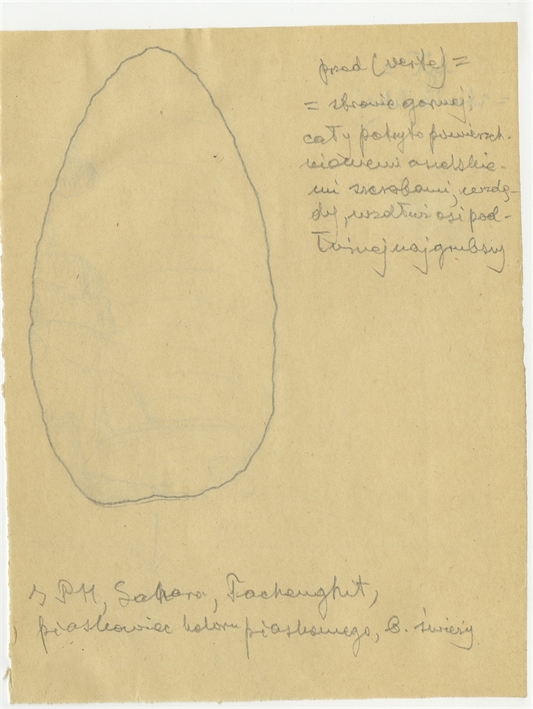 przod (verte) =
= stronie gornej;
cały pokryto powierzch-
niowemi aszelskie-
mi szerokiemi
wzdłuż osi pod-
łużnej najgrubszy
3 PH, Sahara, Tachenghit,
piaskowiec koloru piaskowego, B. świeży